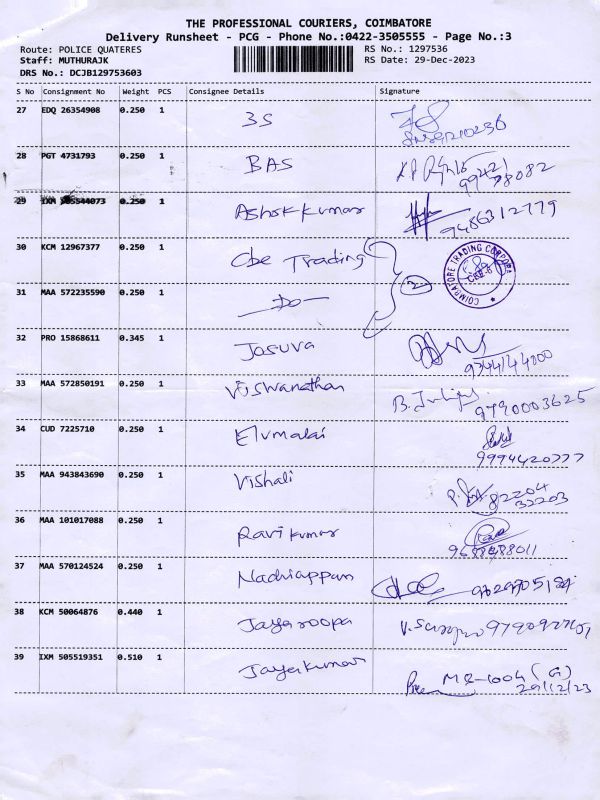 THE PROFESSIONAL COURIERS, COIMBATORE
Delivery Runsheet - PCG - Phone No.:0422-3505555 - Page No.:3
Route: POLICE QUATERES RS No.: 1297536
Staff: MUTHURAJK RS Date: 29-Dec-2023
DRS No.: DCJB129753603
S No Consignment No Weight PCS Consignee Details Signature
27 EDQ 26354908 0.250 1 3S
28 PGT 4731793 0.250 1 BAS
99421 78082
29 IXM 0.250 1 Ashok kumar 9486312779
30 KCM 12967377 0.250 1 Cbe Trading
2
COIMBATORE TRADING CORPORA
CBE-6
31 MAA 572235590 0.250 1 -Do-
32 PRO 15868611 0.345 1 Josuva
9344144800
33 MAA 572850191 0.250 1 Viswanathan
9790003625
34 CUD 7225710 0.250 1 Elumalai
9994420777
35 MAA 943843690 0.250 1 Vishali
82204
32203
36 MAA 101017088 0.250 1 Ravi kumar
9688488011
37 MAA 570124524 0.250 1 Nachiappan
38 KCM 50064876 0.440 1 Jayaroopa
39 IXM 505519351 0.510 1 Jayakumar
29/12/23